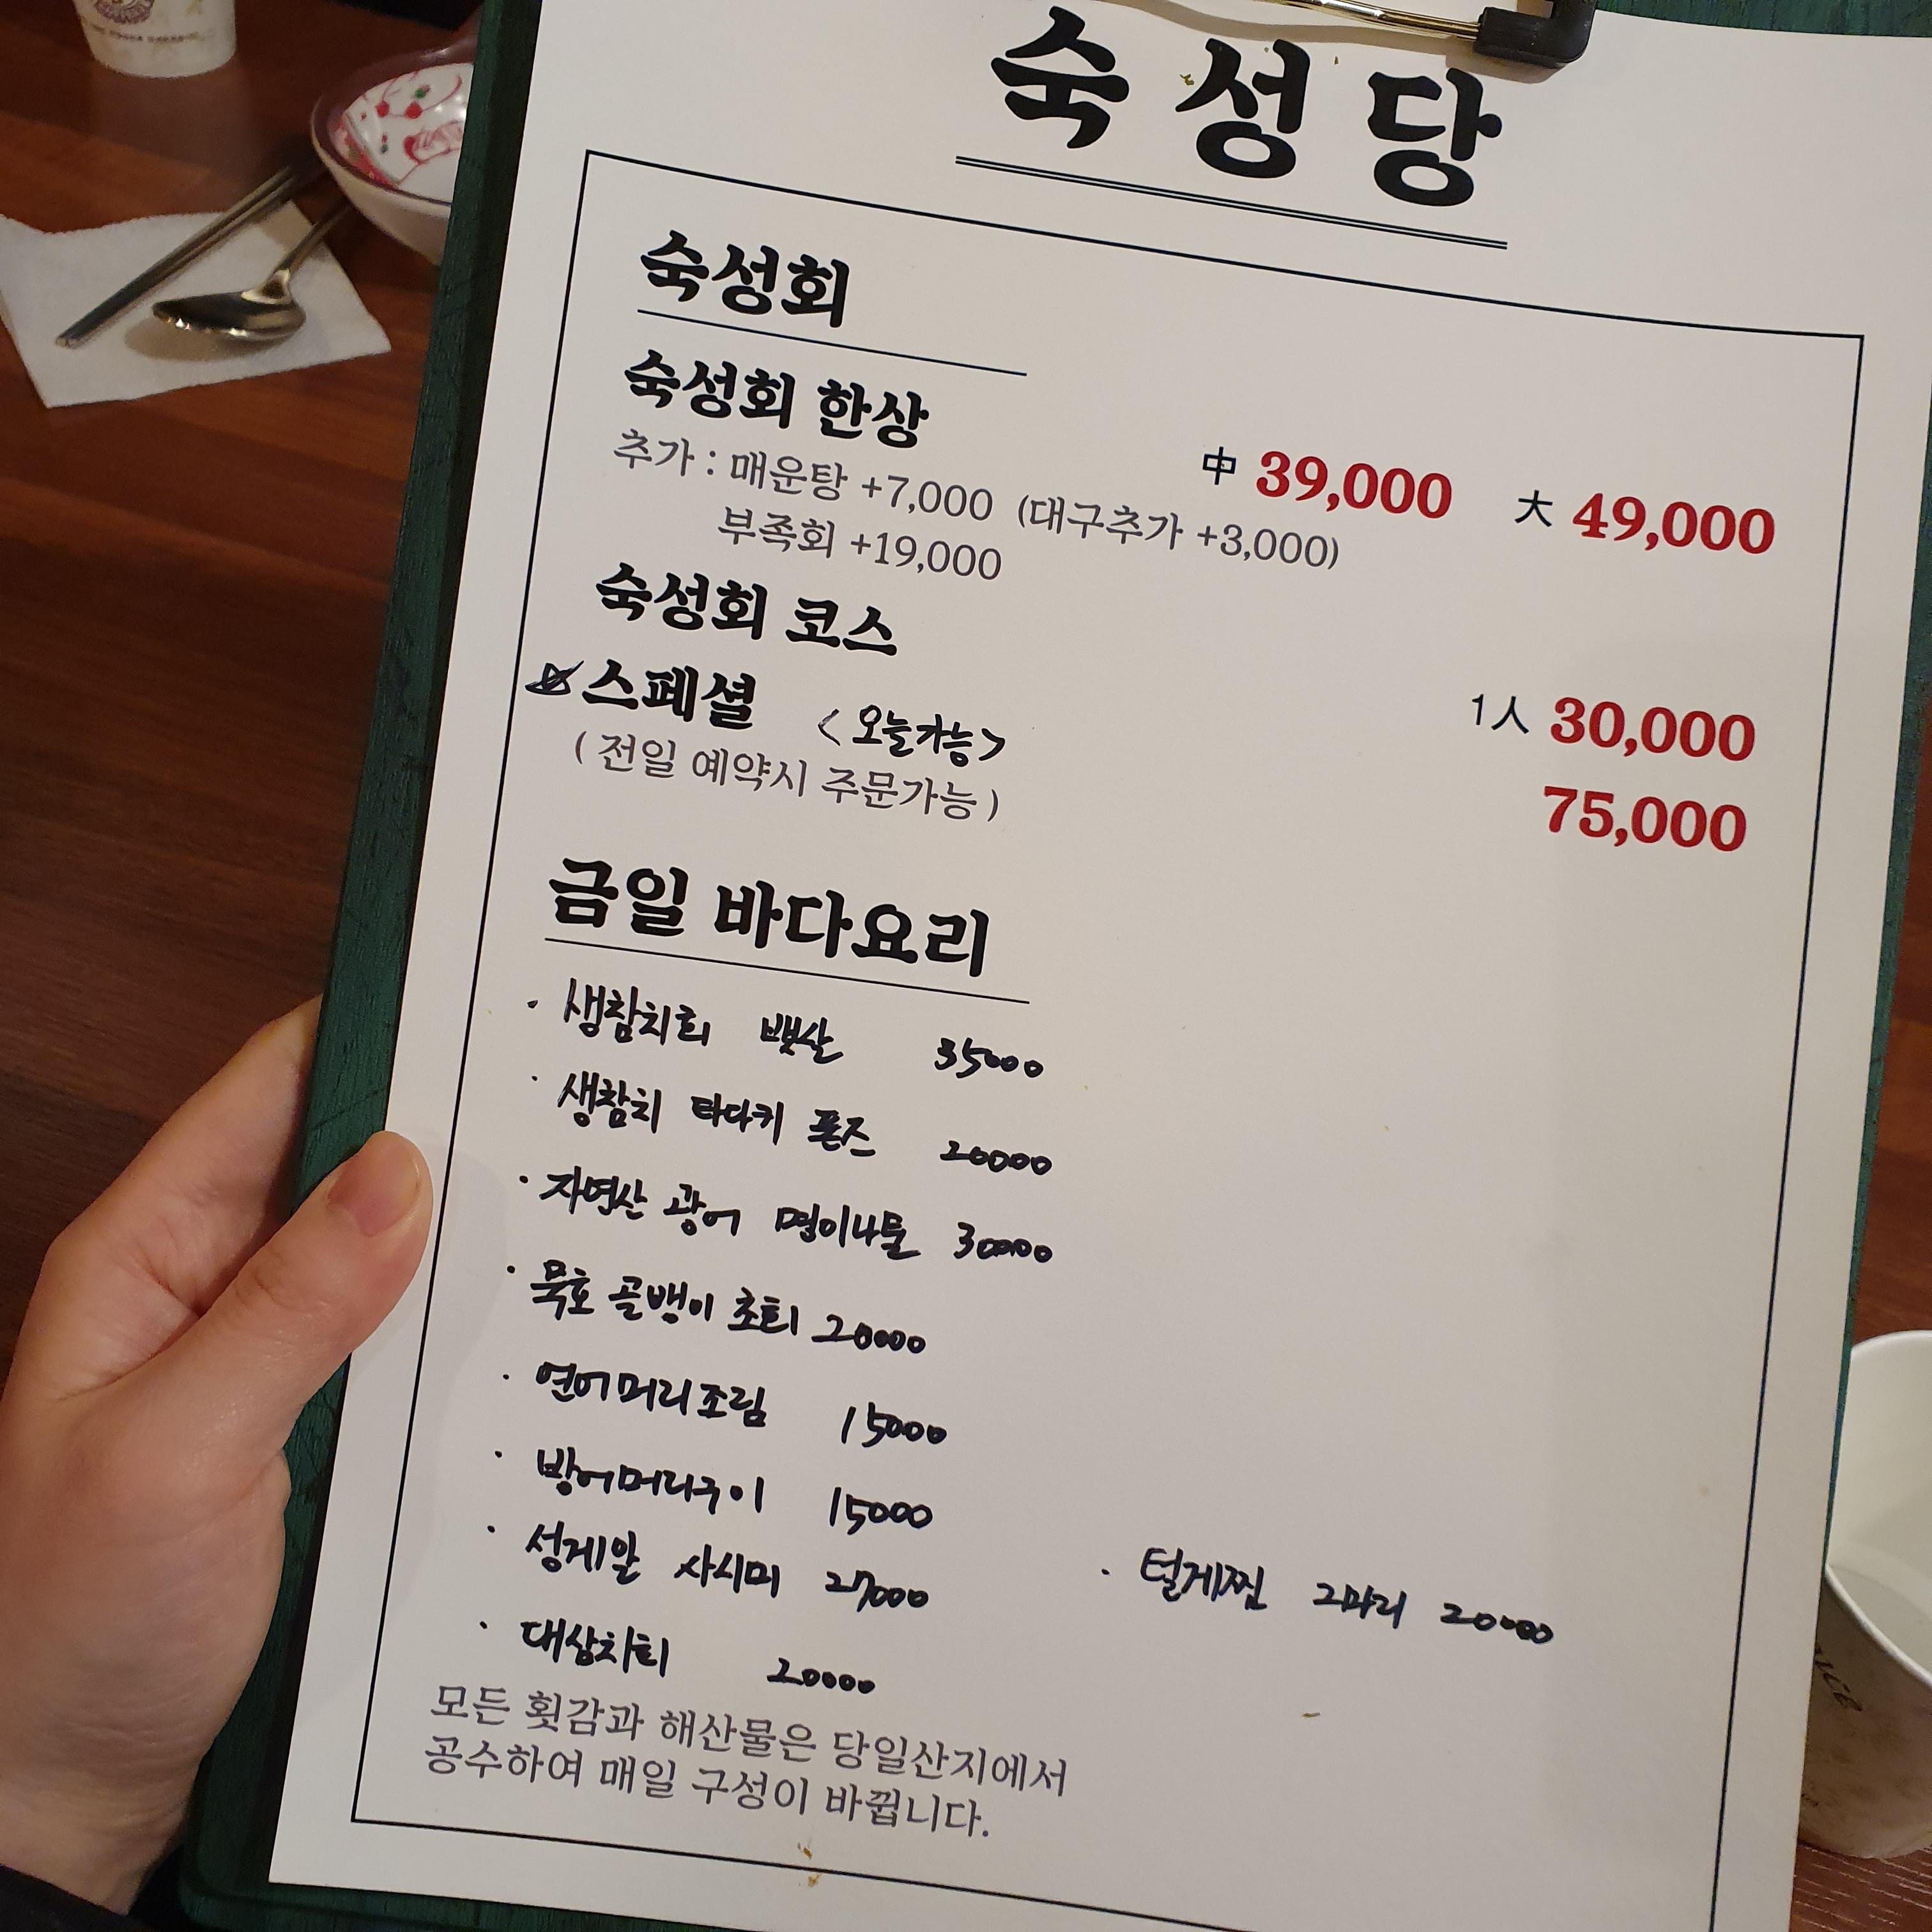 숙성당
숙성회
숙성회 한상
中 39,000 大 49,000
추가 : 매운탕 +7,000 (대구추가 +3,000)
부족회 +19,000
숙성회 코스
1人 30,000
스페셜 <오늘가능>
75,000
( 전일 예약시 주문가능 )
금일 바다요리
· 생참치회 뱃살 35000
· 생참치 타다키 폰즈 20000
· 자연산 광어 명이나물 30000
· 묵호 골뱅이 초회 20000
· 연어머리조림 15000
· 방어머리구이 15000
· 성게알 사시미 27000
· 털게찜 2마리 20000
· 대삼치회 20000
모든 횟감과 해산물은 당일산지에서
공수하여 매일 구성이 바뀝니다.